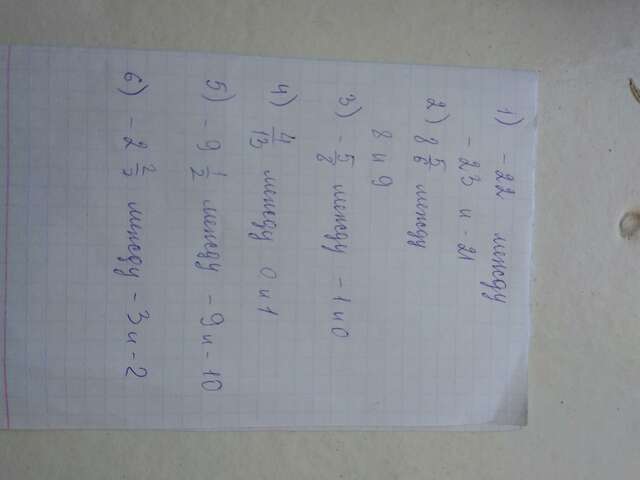 1) -22 между
-23 и -21
2) 8 5/6 между
8 и 9
3) -5/8 между -1 и 0
4) 4/13 между 0 и 1
5) -9 1/2 между -9 и -10
6) -2 2/3 между -3 и -2